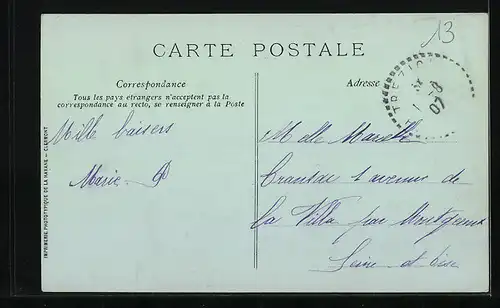 13
CARTE POSTALE
Correspondance
Tous les pays etrangers n'acceptent pas la
correspondance au recto, se renseigner à la Poste
Mille baisers
Marie
IMPRIMERIE PHOTOTYPIQUE DE LA HAVANE - CLERMONT
Adresse
TREZIOUX
07
Melle
1 avenue de
La Villa par Montgeron
Seine et Oise